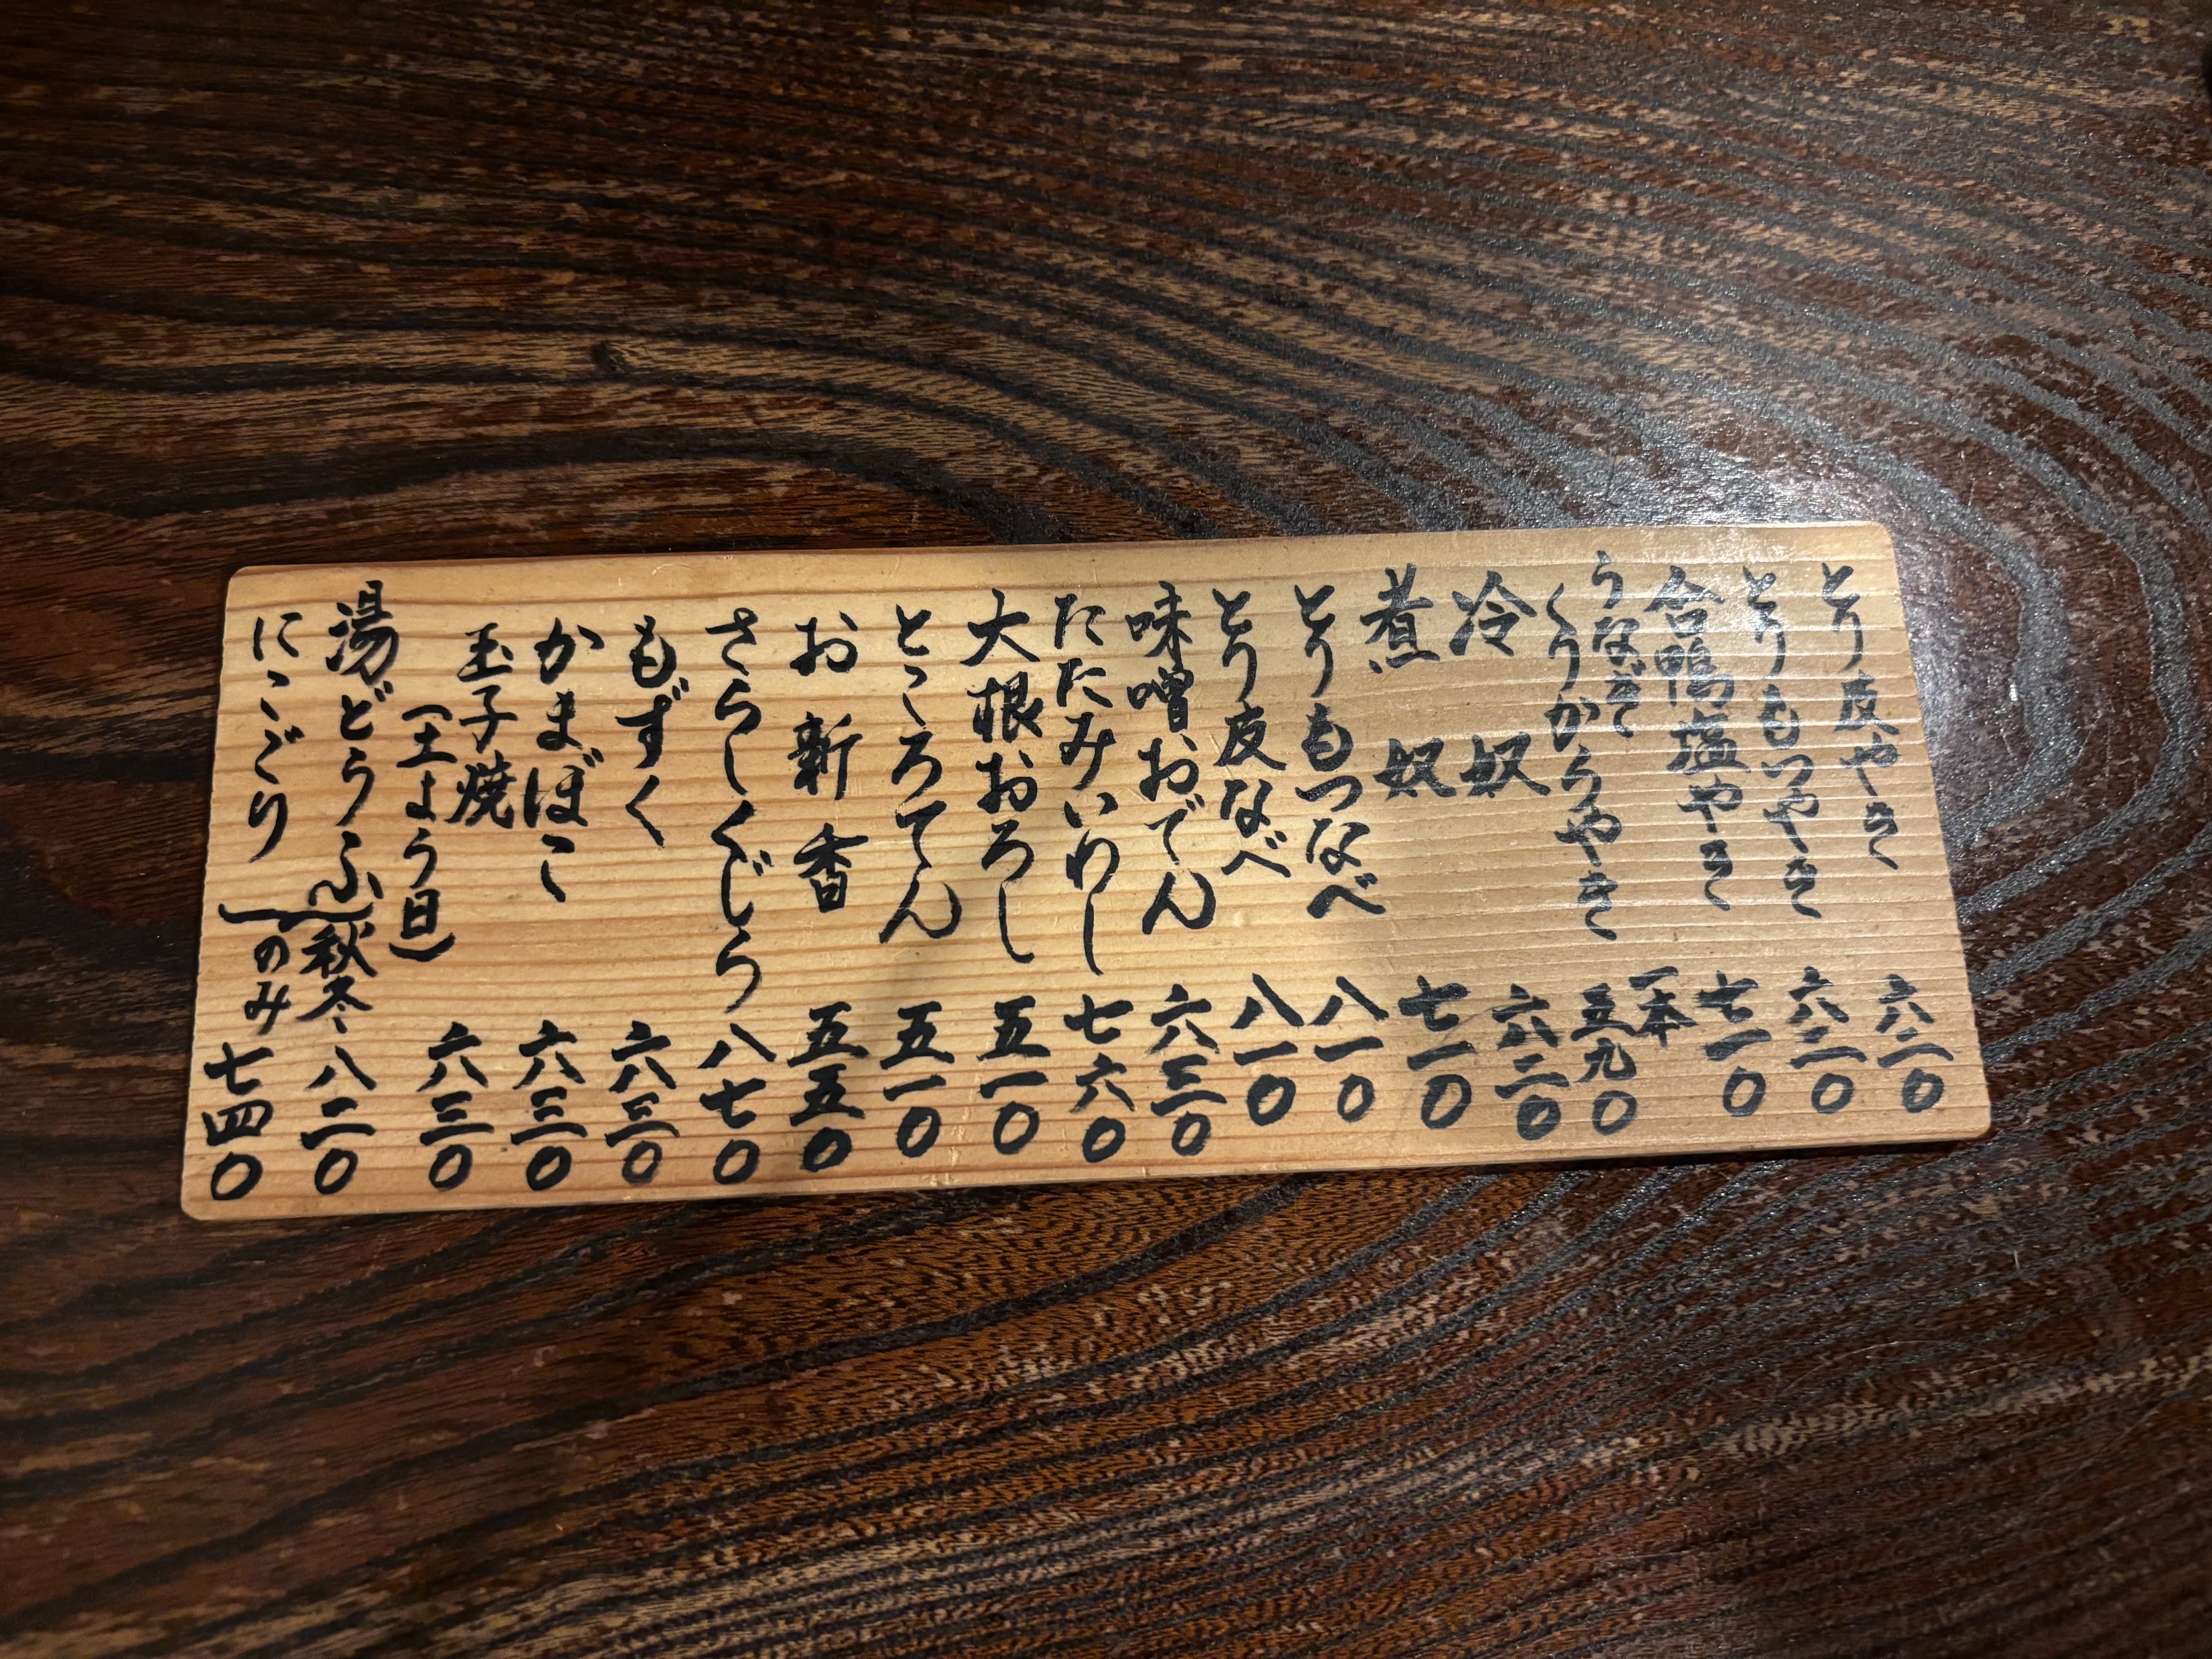 とり皮やき 六二〇
とりもつやき 六二〇
合鴨塩やき 七一〇
うなぎ
くりからやき 一本 五九〇
冷奴 六二〇
煮奴 七一〇
とりもつなべ 八一〇
とり皮なべ 八一〇
味噌おでん 六三〇
たたみいわし 七六〇
大根おろし 五一〇
ところてん 五一〇
お新香 五五〇
さらしくじら 八七〇
もずく 六三〇
かまぼこ 六三〇
玉子焼 六三〇
(土よう日)
湯どうふ 八二〇
にこごり 七四〇
(秋冬のみ)